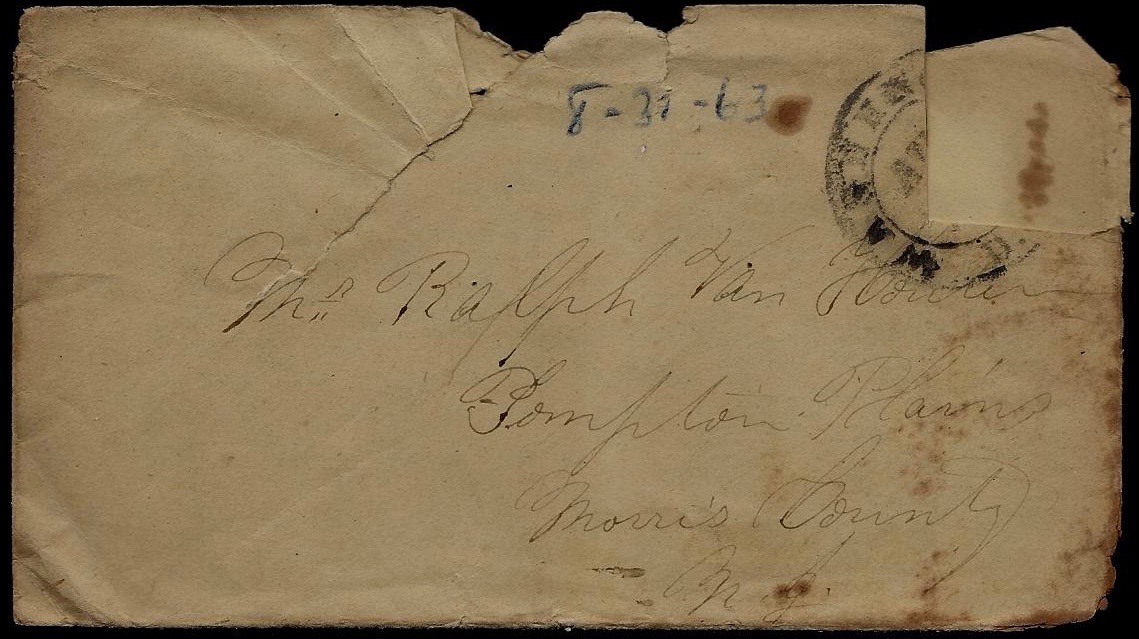 8-31-63
WASHIN
Mr. Ralph Van Houten
Pompton Plains
Morris County
N.J.